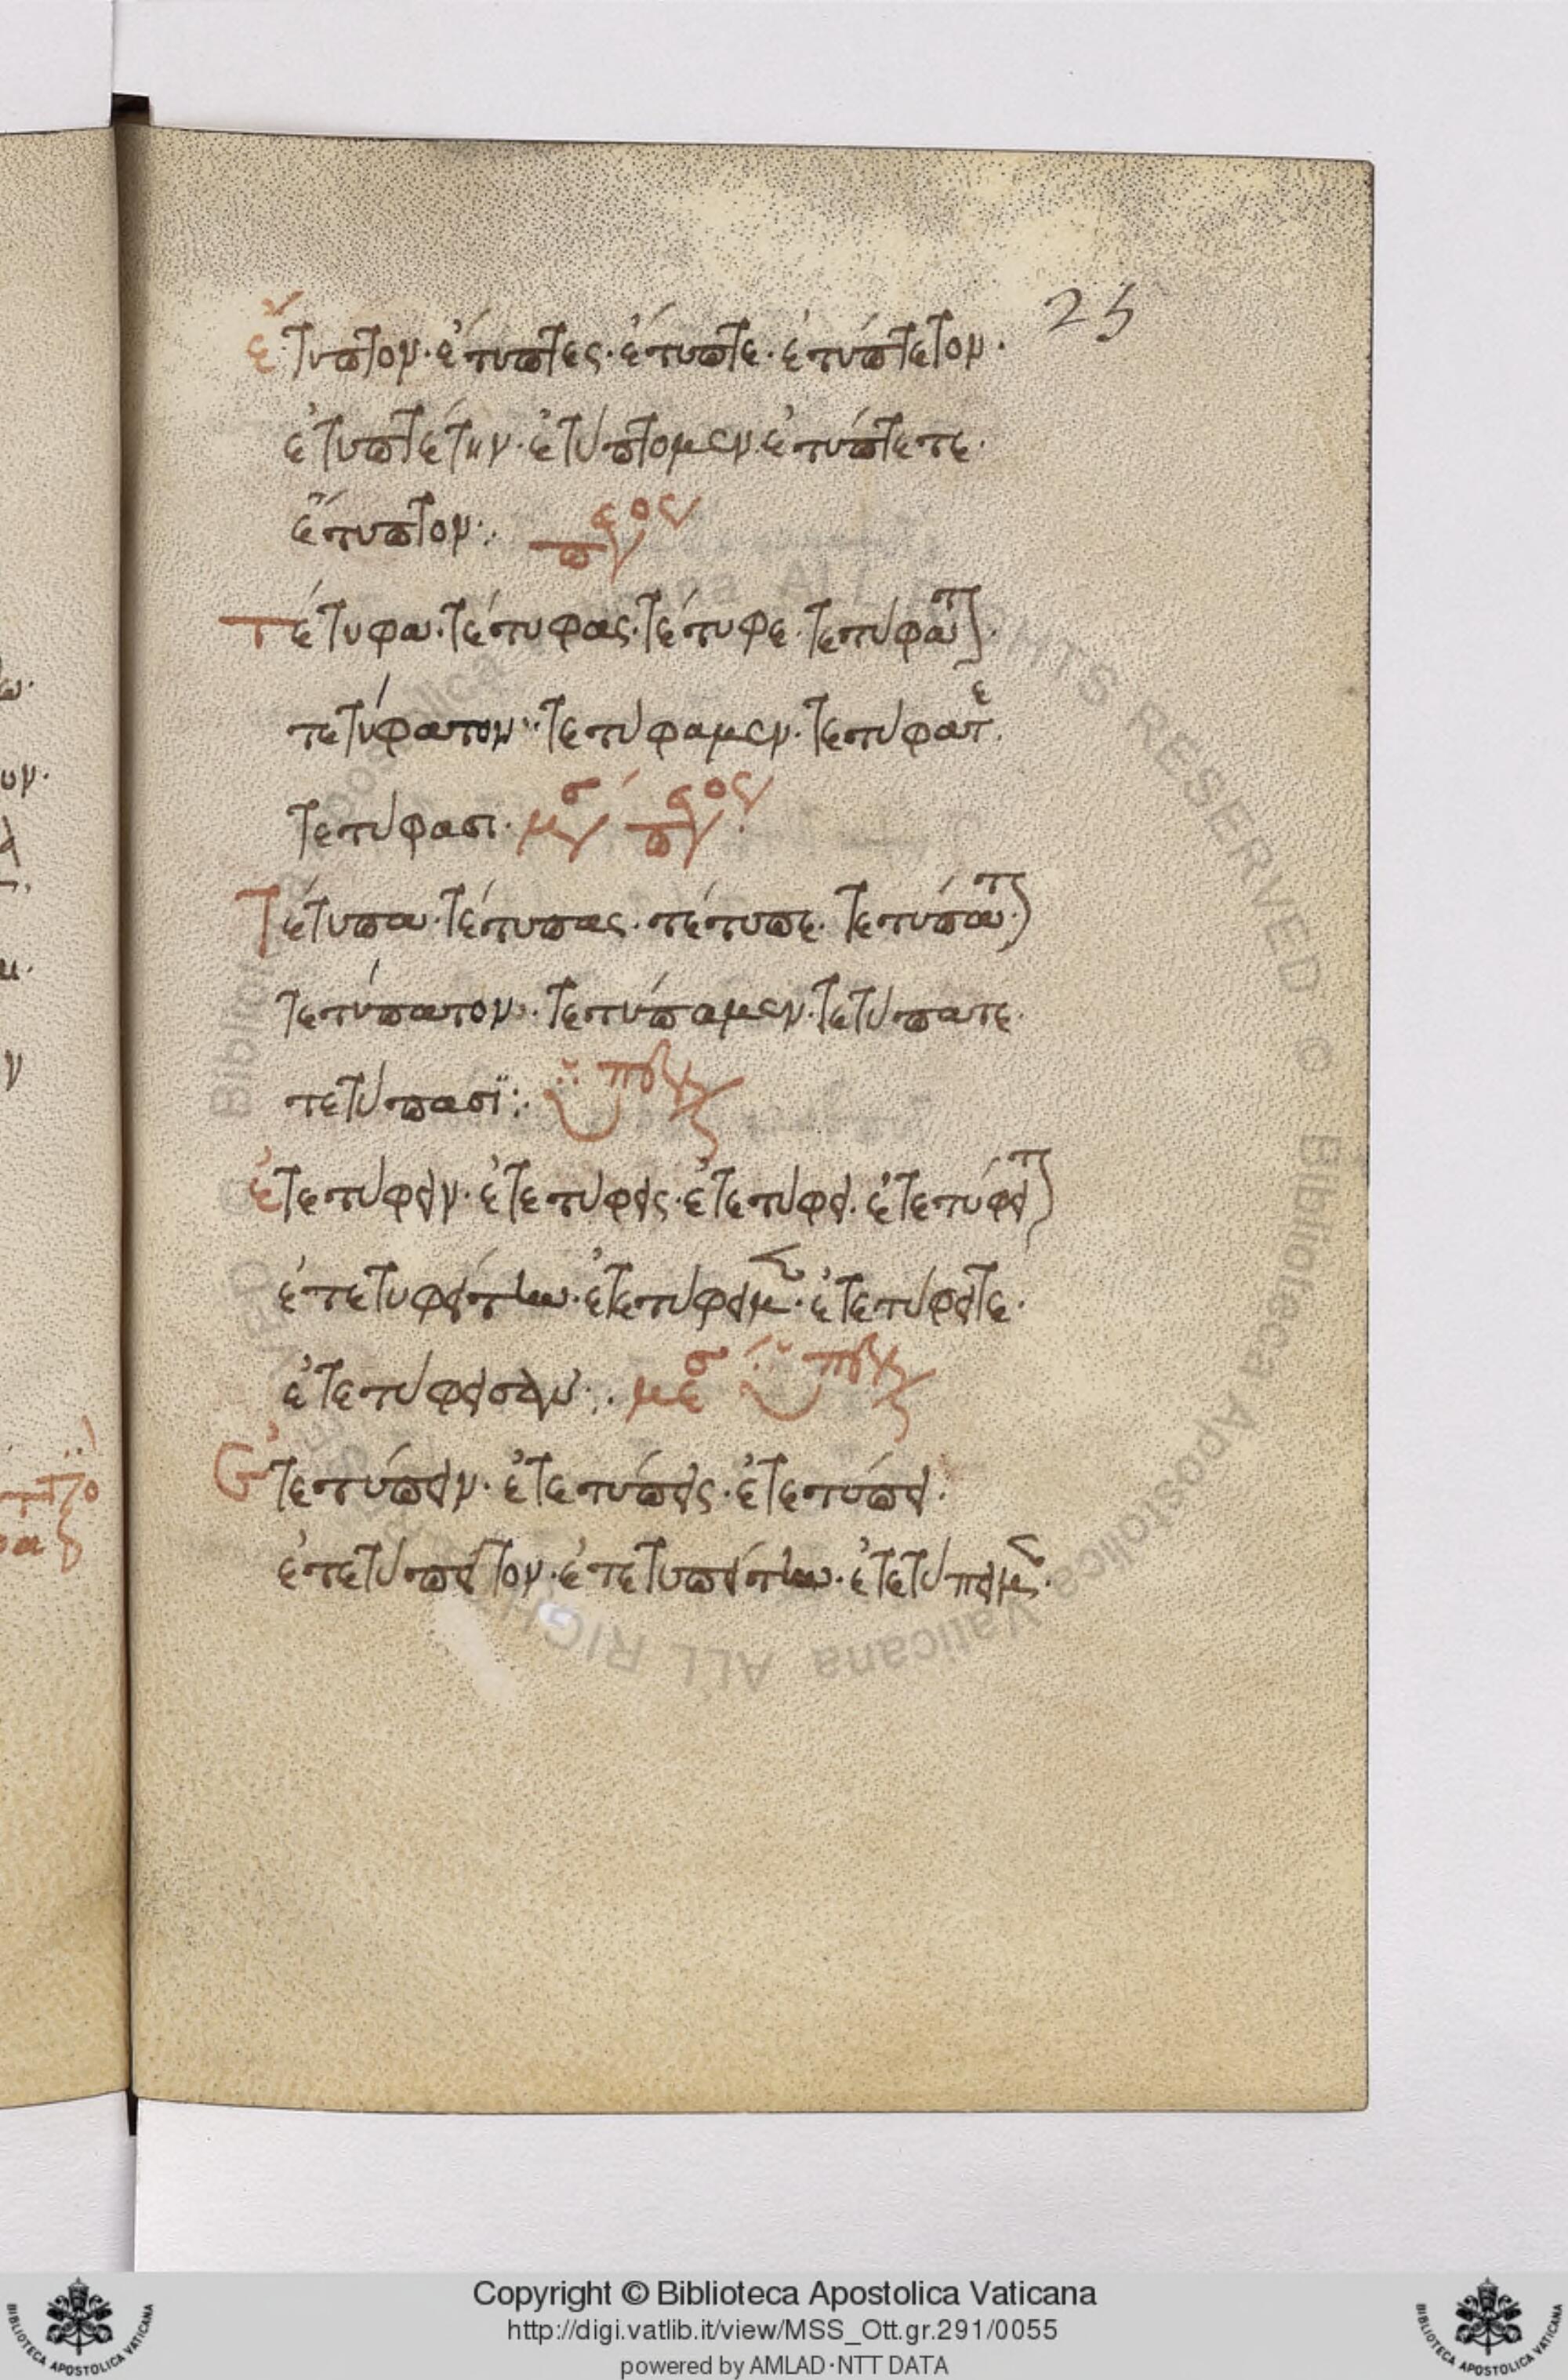 25
ἔτυπτον· ἔτυπτες· ἔτυπτε· ἐτύπτετον·
ἐτυπτέτην· ἐτύπτομεν· ἐτύπτετε·
ἔτυπτον:·
Τέτυφα· τέτυφας· τέτυφε· τετύφατ)·
τετύφατον· τετύφαμεν· τετύφατε·
τετύφασι· μσ
Τέτυπα· τέτυπας· τέτυπε· τετύπατ)
τετύπατον· τετύπαμεν· τετύπατε·
τετύπασϊ:·
ἐτετύφειν· ἐτετύφεις· ἐτετύφει· ἐτετύφειτ)
ἐτετυφείτην· ἐτετύφειμ· ἐτετύφειτε·
ἐτετύφεισαν:· μεσ
Ἐτετύπειν· ἐτετύπεις· ἐτετύπει·
ἐτετύπειτον· ἐτετυπείτην· ἐτετύπειμ·
Copyright © Biblioteca Apostolica Vaticana
http://digi.vatlib.it/view/MSS_Ott.gr.291/0055
powered by AMLAD·NTT DATA